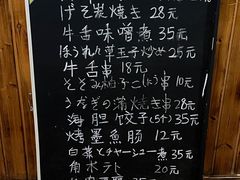 げそ炭焼き 28元
牛舌味噌煮 35元
ほうれん草玉子炒め 25元
牛舌串 18元
串 10元
うなぎの蒲焼き串 28元
海胆饺子(5ケ) 35元
烤墨鱼肠 12元
白菜とチャーシュー煮 35元
角ポテト 20元